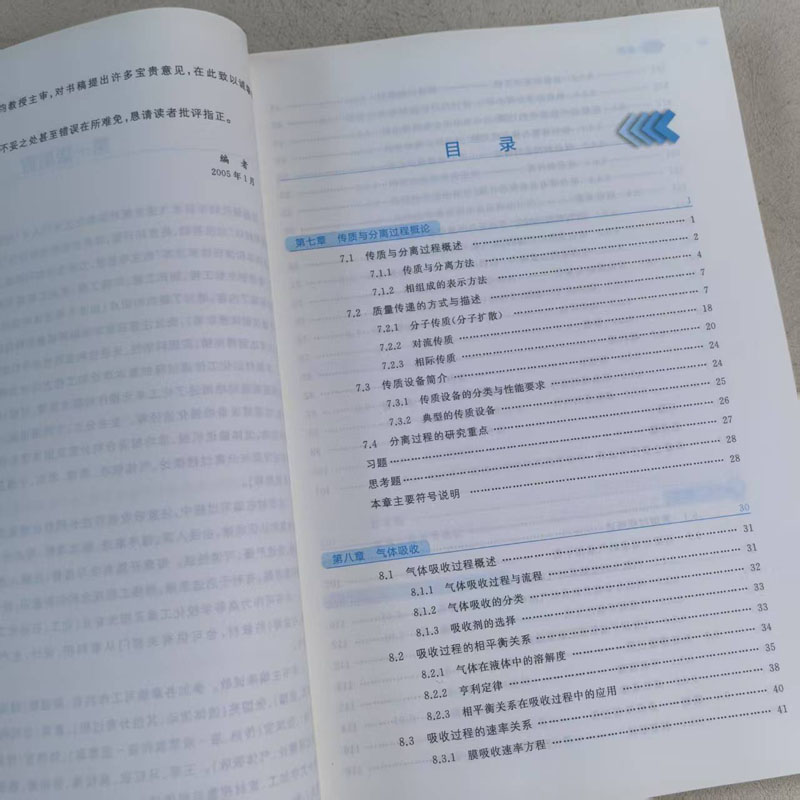 教授主审，对书稿提出许多宝贵意见，在此致以诚
不妥之处甚至错误在所难免，恳请读者批评指正。
编 者
2005年1月
目 录
第七章 传质与分离过程概论 1
7.1 传质与分离过程概述 1
7.1.1 传质与分离方法 2
7.1.2 相组成的表示方法 4
7.2 质量传递的方式与描述 7
7.2.1 分子传质(分子扩散) 7
7.2.2 对流传质 18
7.2.3 相际传质 20
7.3 传质设备简介 24
7.3.1 传质设备的分类与性能要求 24
7.3.2 典型的传质设备 25
7.4 分离过程的研究重点
习题 27
思考题 28
本章主要符号说明 28
第八章 气体吸收 30
8.1 气体吸收过程概述 31
8.1.1 气体吸收过程与流程 31
8.1.2 气体吸收的分类 32
8.1.3 吸收剂的选择 33
8.2 吸收过程的相平衡关系 33
8.2.1 气体在液体中的溶解度 34
8.2.2 亨利定律 35
8.2.3 相平衡关系在吸收过程中的应用 38
8.3 吸收过程的速率关系 40
8.3.1 膜吸收速率方程 41